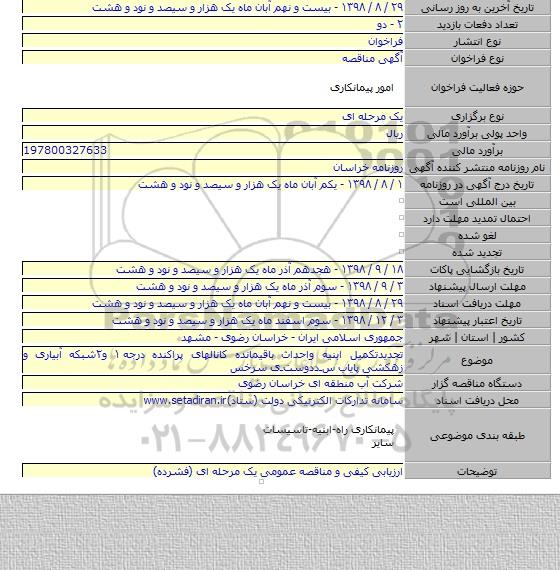 تاریخ آخرین به روز رسانی ۲۹ / ۸ / ۱۳۹۸ - بیست و نهم آبان ماه یک هزار و سیصد و نود و هشت
تعداد دفعات بازدید ۲ - دو
نوع انتشار فراخوان
نوع فراخوان آگهی مناقصه
حوزه فعالیت فراخوان امور پیمانکاری
نوع برگزاری یک مرحله ای
واحد پولی برآورد مالی ریال
برآورد مالی 197800327633
نام روزنامه منتشر کننده آگهی روزنامه خراسان
تاریخ درج آگهی در روزنامه ۱ / ۸ / ۱۳۹۸ - یکم آبان ماه یک هزار و سیصد و نود و هشت
بین المللی است
احتمال تمدید مهلت دارد
لغو شده
تجدید شده
تاریخ بازگشایی پاکات ۱۸ / ۹ / ۱۳۹۸ - هجدهم آذر ماه یک هزار و سیصد و نود و هشت
مهلت ارسال پیشنهاد ۳ / ۹ / ۱۳۹۸ - سوم آذر ماه یک هزار و سیصد و نود و هشت
مهلت دریافت اسناد ۲۹ / ۸ / ۱۳۹۸ - بیست و نهم آبان ماه یک هزار و سیصد و نود و هشت
تاریخ اعتبار پیشنهاد ۳ / ۱۲ / ۱۳۹۸ - سوم اسفند ماه یک هزار و سیصد و نود و هشت
کشور | استان | شهر جمهوری اسلامی ایران - خراسان رضوی - مشهد
موضوع تجدیدتکمیل ابنیه واحداث باقیمانده کانالهای پراکنده درجه۱ و۲شبکه آبیاری و
زهکشی پایاب سددوستی سرخس
دستگاه مناقصه گزار شرکت آب منطقه ای خراسان رضوی
محل دریافت اسناد سامانه تدارکات الکترونیکی دولت (ستاد)www.setadiran.ir
طبقه بندی موضوعی پیمانکاری راه-ابنیه-تاسیسات
سایر
توضیحات ارزیابی کیفی و مناقصه عمومی یک مرحله ای (فشرده)
۰۲۱-۸۸۳۴۹۶۷۰-۵